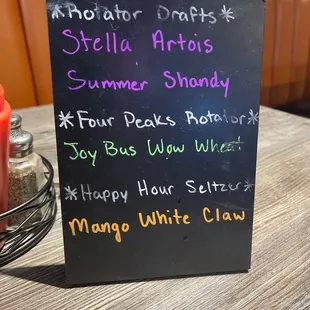 *Rotator Drafts*
Stella Artois
Summer Shandy
*Four Peaks Rotator*
Joy Bus Wow Wheat
*Happy Hour Seltzer*
Mango White Claw